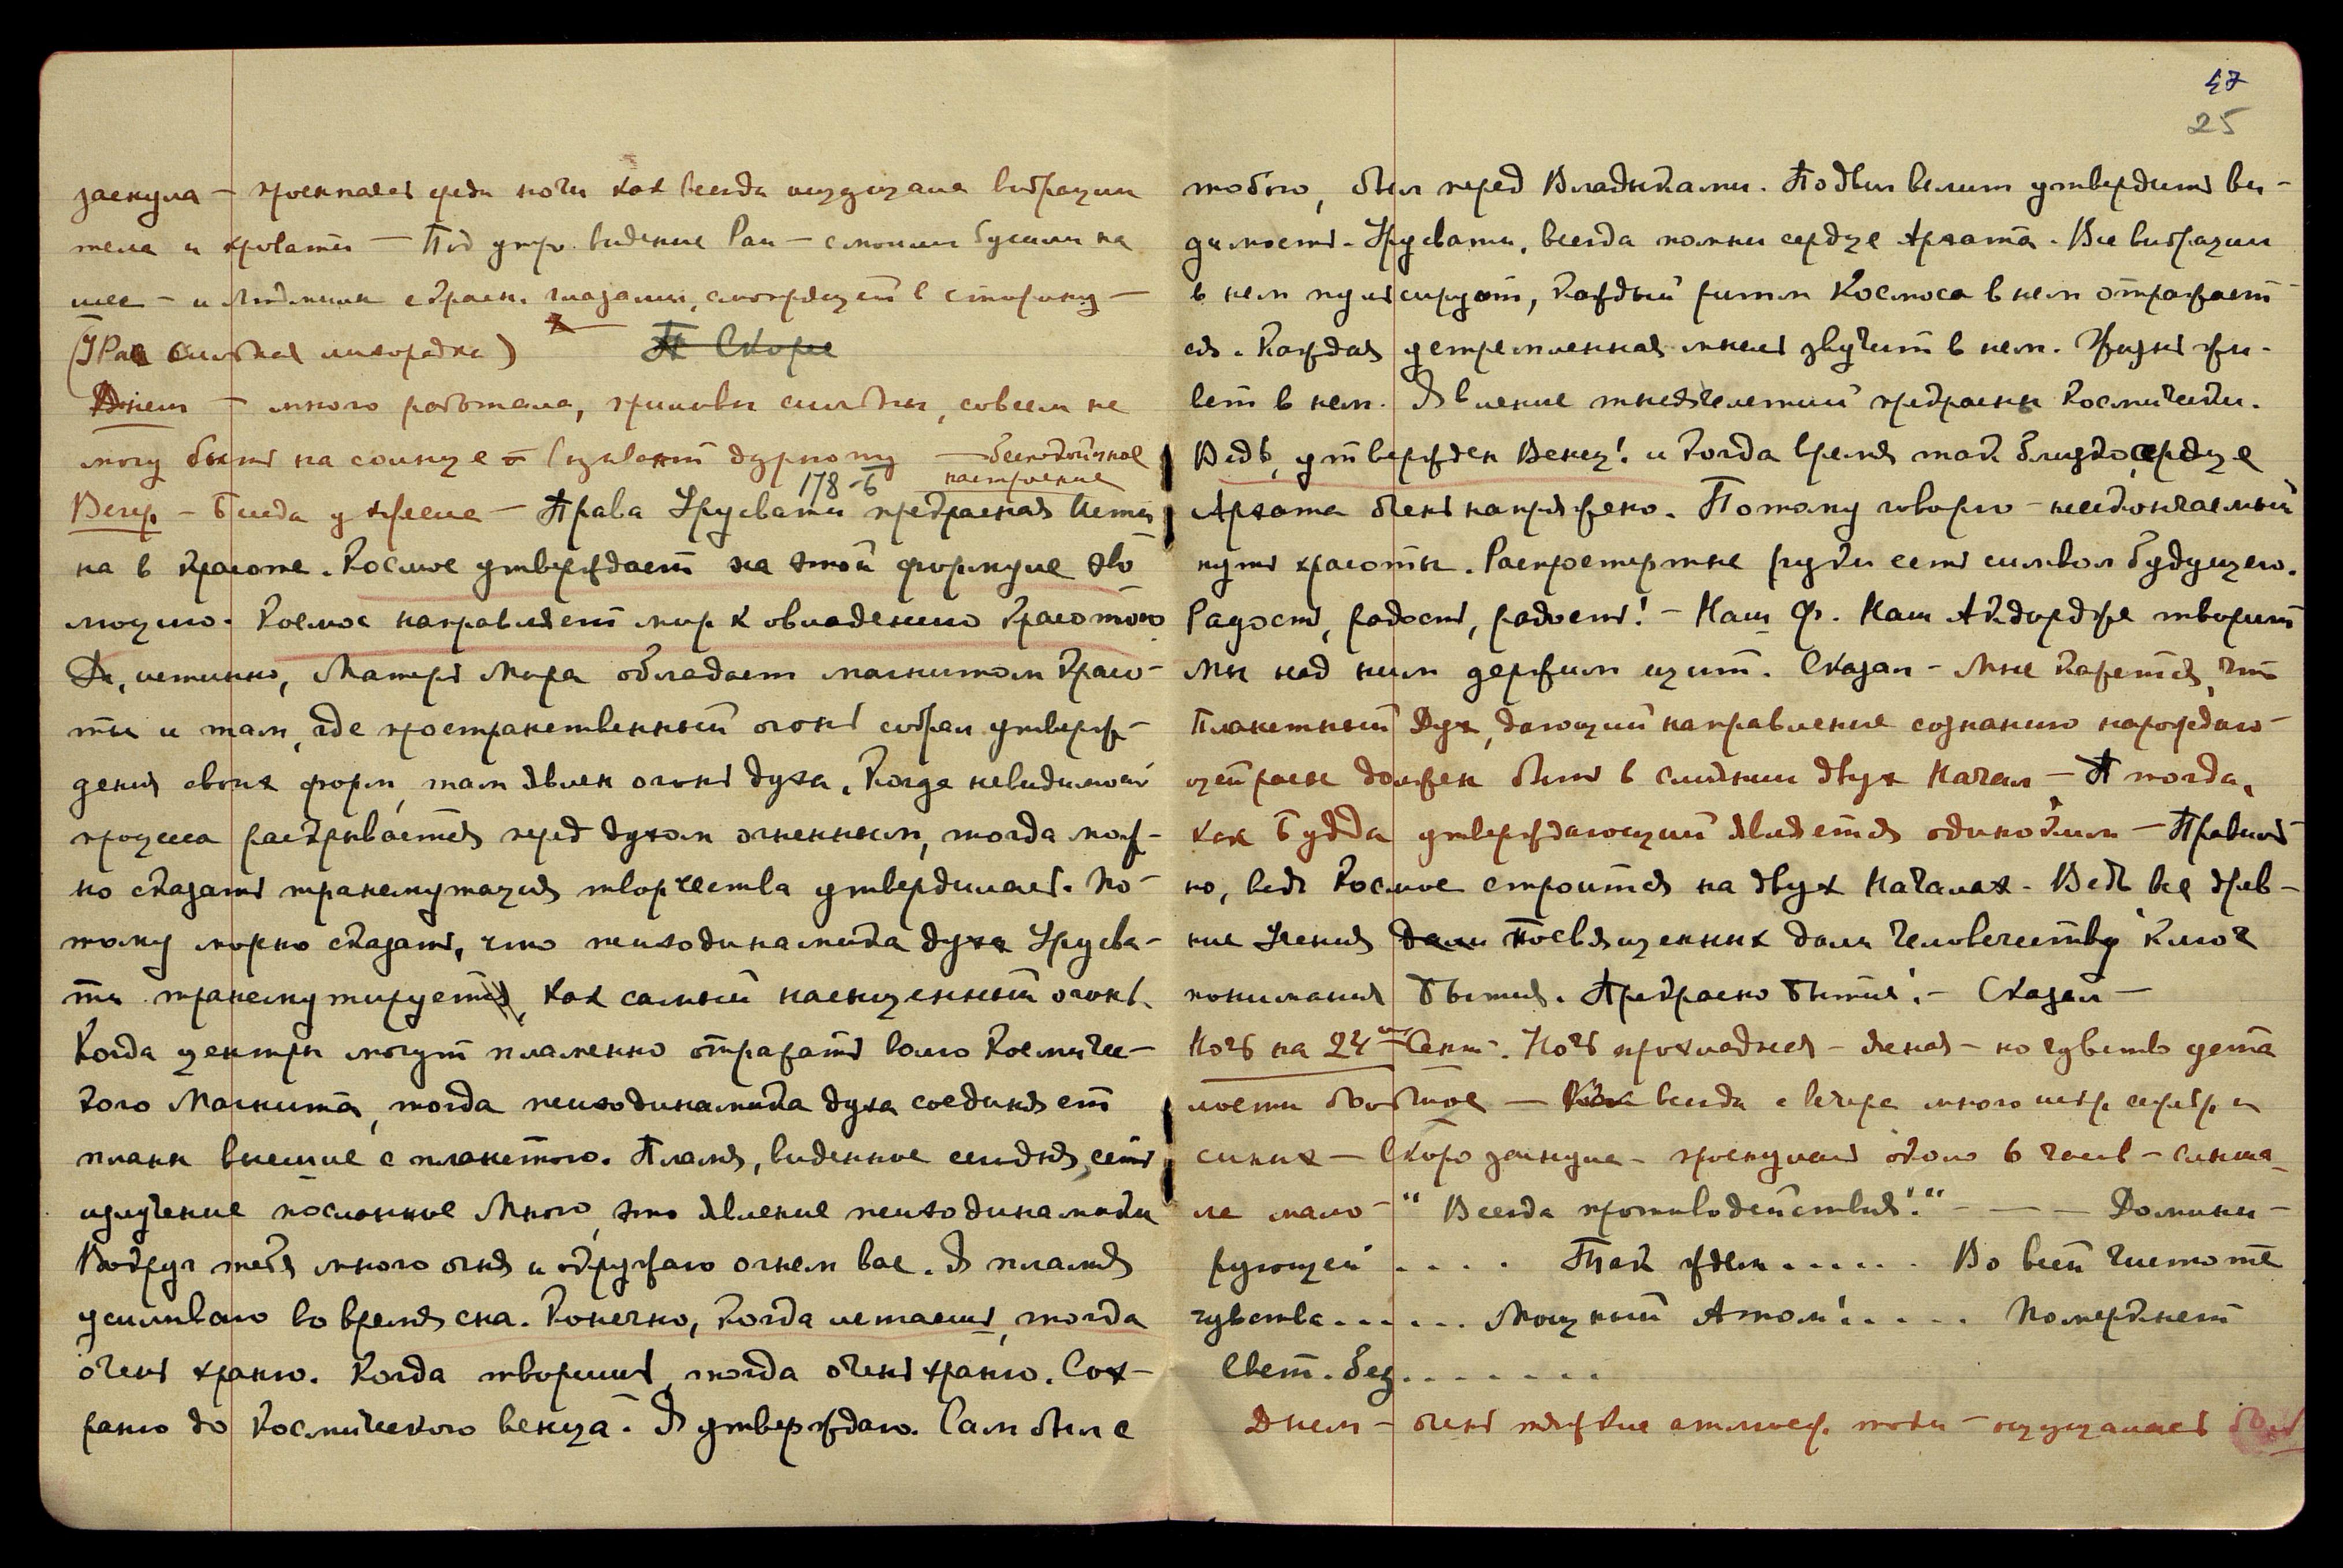 заснула – проснулась среди ночи как всегда ощущала вибрации
тела и кровати – Под утро видение Раи – с моими бусами на
шее – и Людмилы с красн. глазами, смотрящей в сторону –
(У Раи сильная лихорадка) А Скоре
Днем – много работала, приливы сильны, совсем не
могу быть на солнце – вызывает дурноту – беспокойное
178-б настроение
Вечер – Беседа у кресле – Права Урусвати прекрасная Исти
на в красоте. Космос утверждает на этой формуле эво
люцию. Космос направляет мир к овладению красотою
Да, истинно, Матерь Мира обладает магнитом красо-
ты и там, где пространственный огонь собрал утверж-
дения своих форм, там явлен огонь духа. Когда невидимый
процесс раскрывается перед духом огненным, тогда мож-
но сказать трансмутация творчества утвердилась. По-
тому можно сказать, что психодинамика духа Урусва-
ти трансмутируется, как самый насыщенный огонь.
Когда центры могут пламенно отражать волю Космичес-
кого Магнита, тогда психодинамика духа соединяет
планы высшие с планетою. Пламя, виденное сегодня, есть
излучение посланное Мною, это явление психодинамики
Вокруг тебя много огня и окружаю огнем вас. Я пламя
усиливаю во время сна. Конечно, когда летаешь, тогда
очень храню. Когда творишь, тогда очень храню. Сох-
раню до Космического венца. Я утверждаю. Сам был с
47
25
тобою, был перед Владыками. Подвиг велит утвердить ви-
димость. Урусвати, всегда помни сердце Архата. Все вибрации
в нем пульсируют, каждый ритм Космоса в нем отражает
ся. Каждая устремленная мысль звучит в нем. Жизнь жи-
вет в нем. Явление тысячелетий прекрасны Космически.
Ведь, утвержден Венец! и когда время так близко, сердце
Архата очень напряжено. Потому говорю – нескончаемый
путь красоты. Распростертые руки есть символ будущего.
Радость, радость, радость! – Наш Ф. Наш Акдордже творит
мы над ним держим щит. Сказал – Мне кажется, что
Планетный Дух, дающий направление сознанию нарождаю-
щейся расы должен быть в слиянии двух Начал – А тогда,
как Будда утверждающий является одиноким – Правиль
но, ведь Космос строится на двух Началах. Ведь все древ-
ние Учения дали посвященных дали человечеству ключ
понимания Бытия. Прекрасно Бытие! – Сказал –
Ночь на 24ое Сент. Ночь прохладная – ясная – но чувство уста
лости большое – Как всегда с вечера много искр серебр. и
синих – Скоро заснула – проснулась около 6 часов – слыша-
ла мало – “Всегда противодействия!“ – – – Домини-
рующей . . . . Так ждем . . . . . . Во всей чистоте
чувства . . . . . . Мощный Атом! . . . . . Померкнет
Свет. без . . . . . . .
Днем – очень тяжкие атмосф. токи – ощущалась